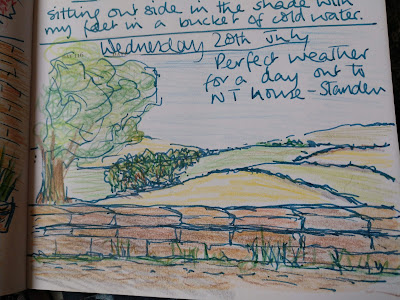 sitting out side in the shade with
my feet in a bucket of cold water.
Wednesday 20th July
Perfect weather
for a day out to
NT house - Standen